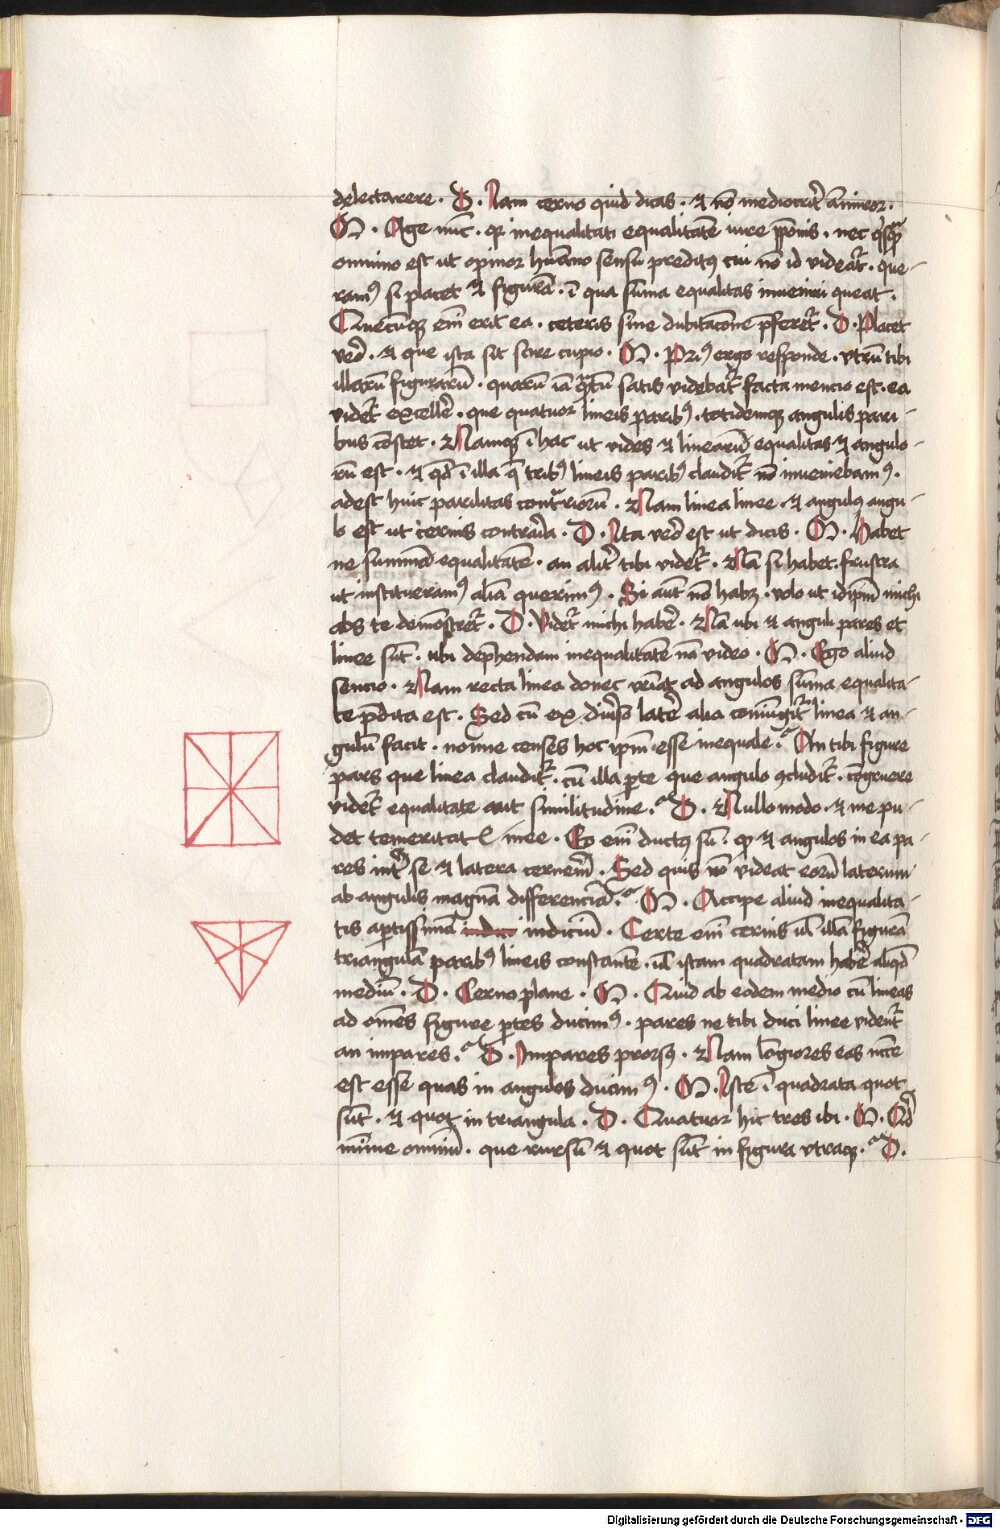 delectarere . D . Nam cerno quid dicas . et nō mediocrit᷑ ānueor .
M . Age nūc . qr inequalitati equalitatē iure p̄ponis . nec q̄sq̄
omnino est ut opinor humano sensu preditꝯ cui nō id videat᷑ . que-
ramꝯ si placet et figurā . ī qua sūma equalitas inueniri queat .
Quecūqꝫ em̄ erit ea . ceteris sine dubitacōne p̄feret᷑ . D . Placet
vero . et que ista sit scire cupio . M . Pri9 ergo responde . vtrū tibi
illarū figurarū . quarū iā q̄tū satis videbat᷑ facta mencio est . ea
videt᷑ excelle᷑ . que quatuor lineis paribꝯ . totidemqꝫ angulis pari-
bus cōstet . Namqꝫ ī hac ut vides et linearū equalitas et angulo-
rū est . et qd̄ ī illa q̄ tribꝯ lineis paribꝯ claudit᷑ nō inueniebamꝯ .
adest huic parilitas cont᷑riorū . Nam linea linee . et angulꝯ angu-
lo est ut cernis contraria . D . Ita vero est ut dicis . M . Habet
ne summā equalitatē . an alit᷑ tibi videt᷑ . Nā si habet . frustra
ut instituteramꝯ aliā querimꝯ . Si aut̄ nō habꝫ . volo ut idip̄m michi
abs te demōstret᷑ . D . Videt᷑ michi habe᷑ . Nā ubi et anguli pares et
linee sūt . ubi dep̄hendam inequalitatē nō video . M . Ego aliud
sencio . Nam recta linea donec veniat ad angulos sūma equalita-
te p̄dita est . Sed cū ex diuerso late᷑ alia coniūgit᷑ linea et an-
gulū facit . nonne censes hoc ip̄m esse inequale . An tibi figure
pars que linea claudit᷑ . cū illa p̄te que angulo ꝯcludit᷑ . cōgruere
videt᷑ equalitate aut similitudine . D . Nullo modo . et me pu-
det temeritatꝭ mee . Eo em̄ ductꝯ sū . qꝫ et angulos in ea pa-
res int᷑ se et latera cernerē . Sed quis nō videat eorū laterum
ab angulis magnā differenciā . M . Accipe aliud inequalita-
tis aptissimā indiciū . Certe em̄ cernis ul̄ illā figurā
triangulā paribꝯ lineis constantē . ul̄ istam quadratam habe᷑ aliqd̄
mediū . D . Cerno plane . M . Quid ab eodem medio cū lineas
ad om̄es figure p̄tes ducimꝯ . pares ne tibi duci linee vident᷑
an impares . D . Impares prorsꝯ . Nam lōgiores eas nc̄ce
est esse quas in angulos ducimꝯ . M . Iste ī quadrata quot
sūt . et quot in triangula . D . Quatuor hic tres ibi . M . Qd̄
mīme omniū . que rursū et quot sūt in figura vtraqꝫ . D .
Digitalisierung gefördert durch die Deutsche Forschungsgemeinschaft - DFG